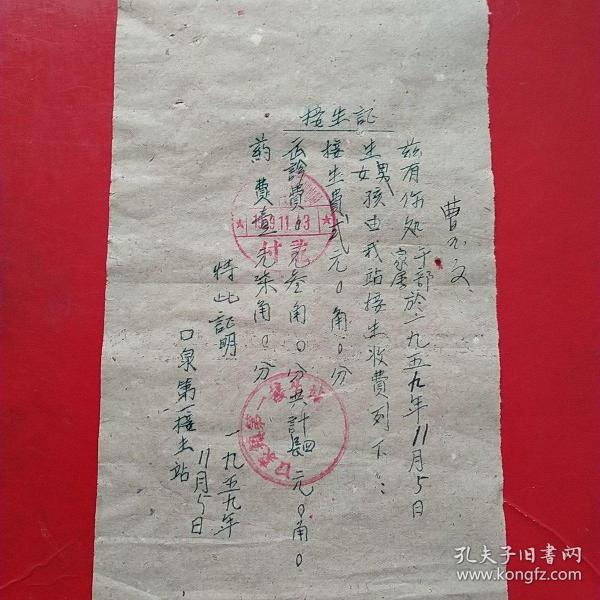 接生証
曹
茲有你处干部家屬於一九五九年11月5日
生男女孩由我站接生收費列下：
接生費贰元0角0分
医診費0元叁角0分共計四元0角0
葯費壹元柒角0分
特此証明
口泉第一接生站
一九五九年
11月5日
1959.11.3
付
口泉鎮第一接生站
孔夫子旧书网
www.kongfz.com